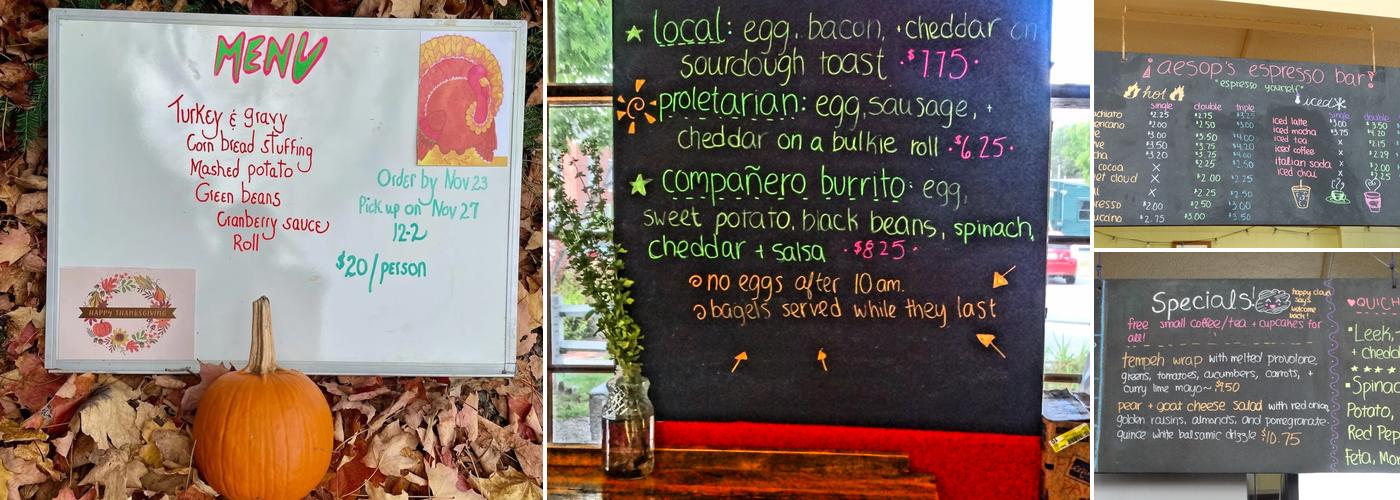 MENU
Turkey & gravy
Corn bread stuffing
Mashed potato
Green beans
Cranberry sauce
Roll
Order by Nov 23
Pick up on Nov 27
12-2
$20/person
HAPPY THANKSGIVING
local: egg, bacon, + cheddar on
sourdough toast $7.75
proletarian: egg, sausage, +
cheddar on a bulkie roll $6.25
compañero burrito: egg,
sweet potato, black beans, spinach,
cheddar + salsa $8.25
no eggs after 10am.
bagels served while they last
¡aesop's espresso bar!
"espresso yourself"
hot
single double triple
$2.25 $2.75 $3.25
$2.00 $2.50 $3.00
$3.00 $3.50 $4.00
$3.25 $3.75 $4.20
$3.20 $3.75 $4.00
cocoa X $2.25 $2.50
cloud X $2.00
X $2.25 $2.50
$2.00 $2.50
$2.75 $3.00 $3.50
iced
single double
iced latte $3.00 $3.50
iced mocha $3.75 $4.20
iced tea X
iced coffee X
italian soda X $2.00
iced chai X
Specials!
happy cloud
says
welcome
back!
free small coffee/tea + cupcakes for
all!
tempeh wrap with melted provolone,
greens, tomatoes, cucumbers, carrots, +
curry lime mayo~ $9.50
pear + goat cheese salad with red onion,
golden raisins, almonds, and pomegranate-
quince white balsamic drizzle $10.75
QUICH
Leek,
+ chedd
Spinac
Potato,
Red Pep
Feta, Mor